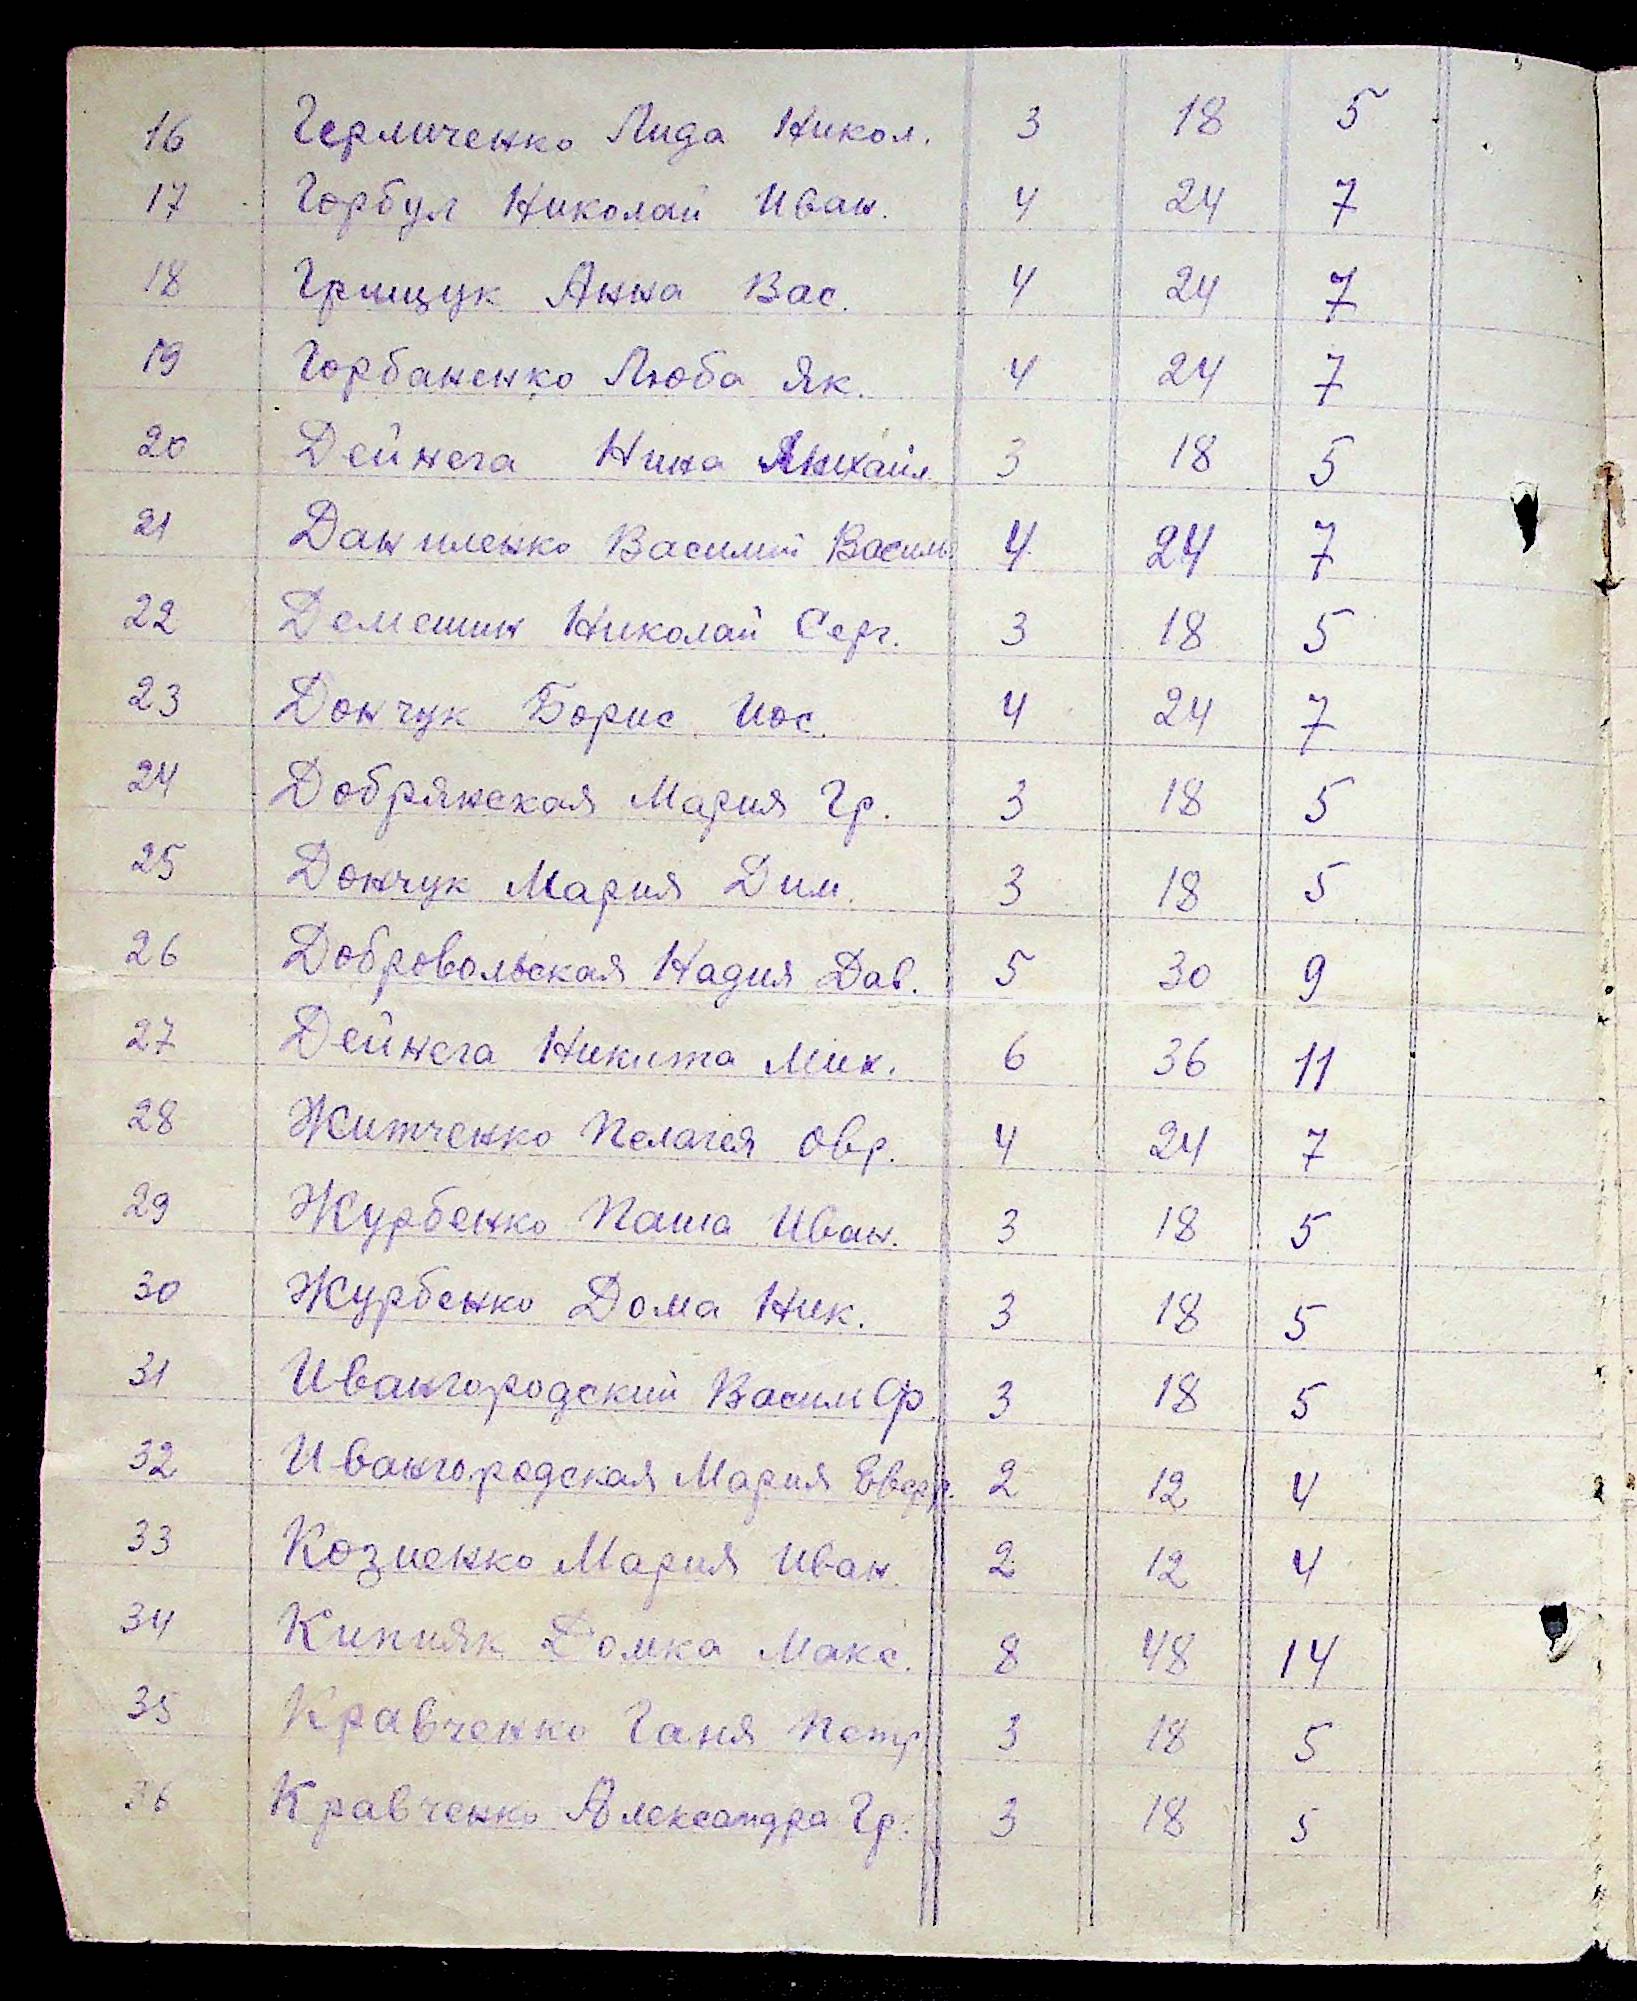 16 Герличенко Лида Никол. 3 18 5
17 Горбул Николай Иван. 4 24 7
18 Грищук Анна Вас. 4 24 7
19 Горбаненко Люба Як. 4 24 7
20 Дейнега Нина Михайл. 3 18 5
21 Даниленко Василий Василь. 4 24 7
22 Демешин Николай Серг. 3 18 5
23 Дончук Борис Иос. 4 24 7
24 Добрянская Мария Гр. 3 18 5
25 Дончук Мария Дим. 3 18 5
26 Добровольская Надия Дав. 5 30 9
27 Дейнега Никита Мих. 6 36 11
28 Житченко Пелагея Овр. 4 24 7
29 Журбенко Паша Иван. 3 18 5
30 Журбенко Дома Ник. 3 18 5
31 Ивангородский Васил Ф. 3 18 5
32 Ивангородская Мария 2 12 4
33 Козиенко Мария Иван. 2 12 4
34 Кипияк Домка Макс. 8 48 14
35 Кравченко Ганя Петр. 3 18 5
36 Кравченко Александра Гр. 3 18 5